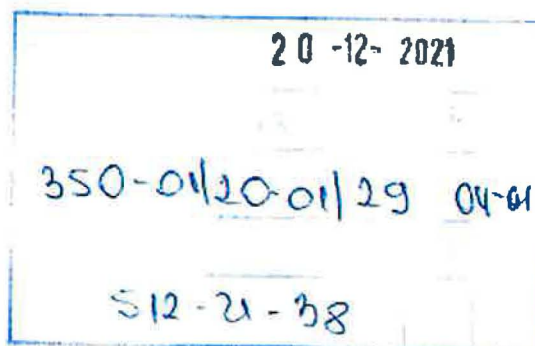 20-12-2021
350-01/20-01/29 04-01
512-21-38